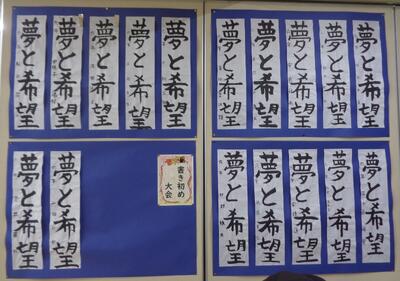 夢と希望
夢と希望
夢と希望
夢と希望
夢と希望
夢と希望
夢と希望
夢と希望
夢と希望
夢と希望
夢と希望
夢と希望
書き初め
大会
夢と希望
夢と希望
夢と希望
夢と希望
夢と希望